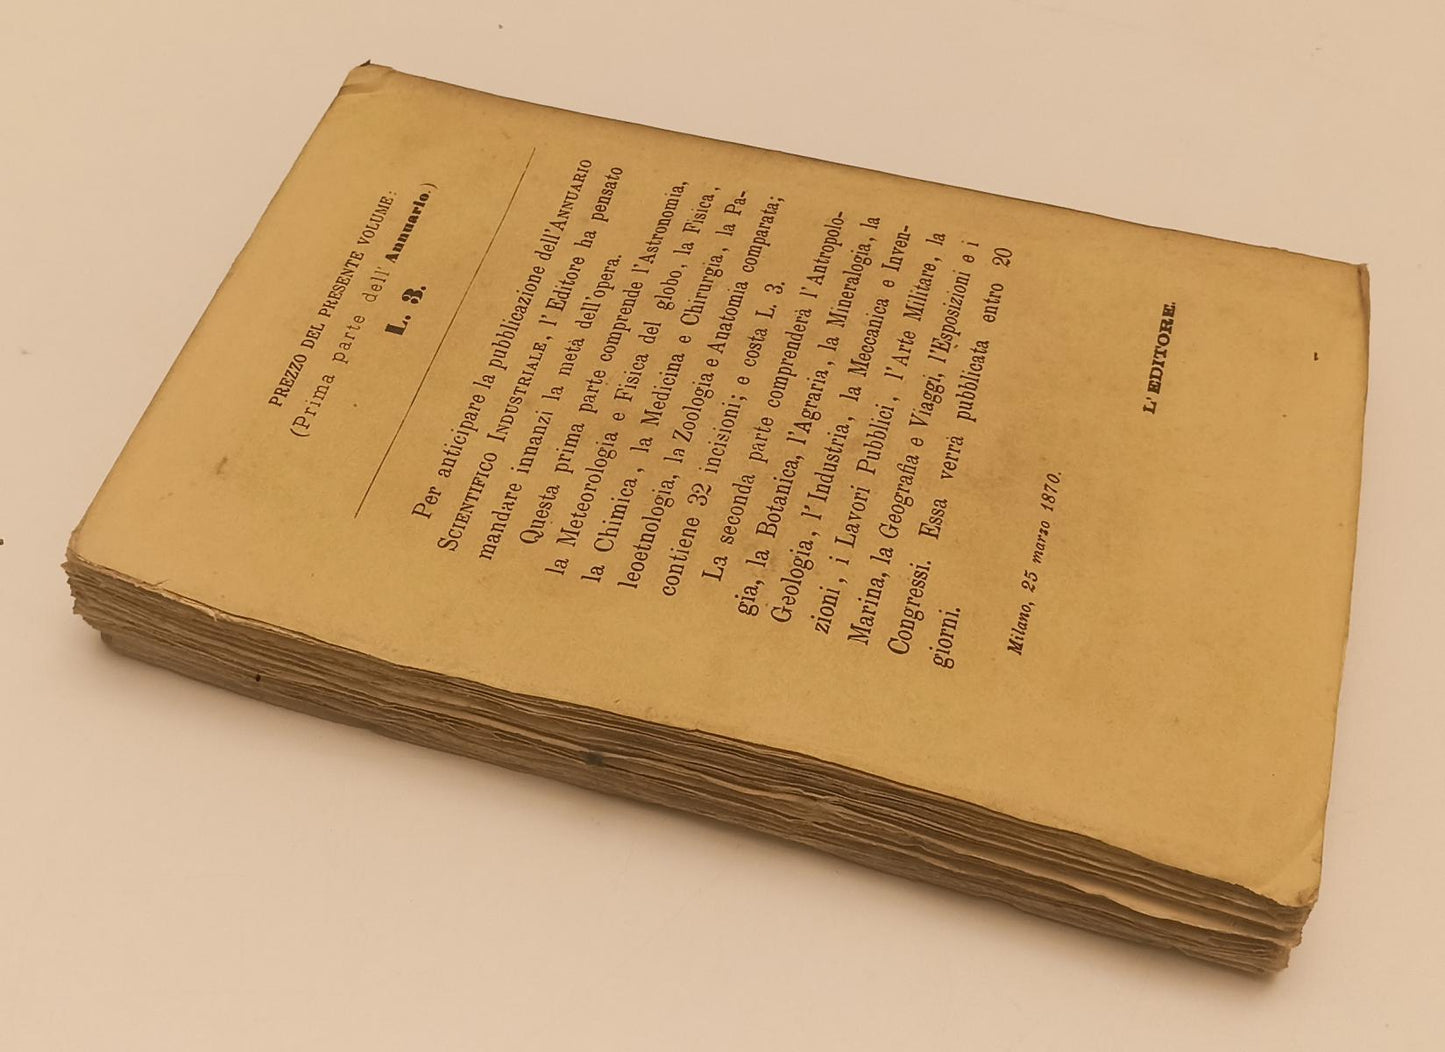 PREZZO DEL PRESENTE VOLUME:
(Prima parte dell' Annuario.)
L. 3.
Per anticipare la pubblicazione dell'ANNUARIO
SCIENTIFICO INDUSTRIALE, l'Editore ha pensato
mandare innanzi la metà dell'opera.
Questa prima parte comprende l'Astronomia,
la Meteorologia e Fisica del globo, la Fisica,
la Chimica, la Medicina e Chirurgia, la Pa-
leoetnologia, la Zoologia e Anatomia comparata;
contiene 32 incisioni; e costa L. 3.
La seconda parte comprenderà l'Antropolo-
gia, la Botanica, l'Agraria, la Mineralogia, la
Geologia, l'Industria, la Meccanica e Inven-
zioni, i Lavori Pubblici, l'Arte Militare, la
Marina, la Geografia e Viaggi, l'Esposizioni e i
Congressi. Essa verrà pubblicata entro 20
giorni.
Milano, 25 marzo 1870.
L'EDITORE.